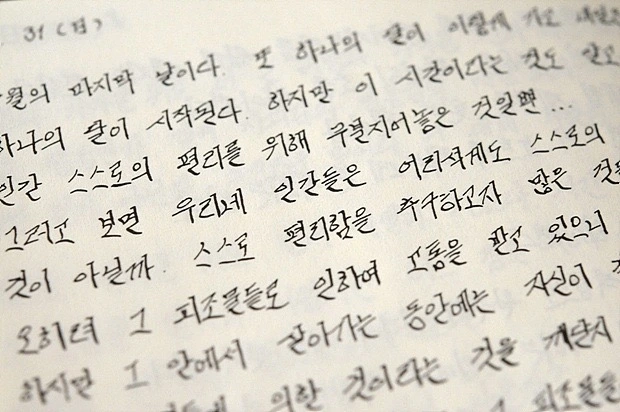 31 (日)
월의 마지막 날이다. 또 하나의 달이 이렇게 가고
하나의 달이 시작된다. 하지만 이 시간이라는 것도 알고
인간 스스로의 편리를 위해 구분지어놓은 것일뿐...
그러고 보면 우리네 인간들은 어리석게도 스스로의
것이 아닐까. 스스로 편리함을 추구하고자 많은 것을
오히려 그 피조물들로 인하여 고통을 받고 있으니
하지만 그 안에서 살아가는 동안에는 자신이
의한 것이라는 것을 깨닫지
그 피조물들